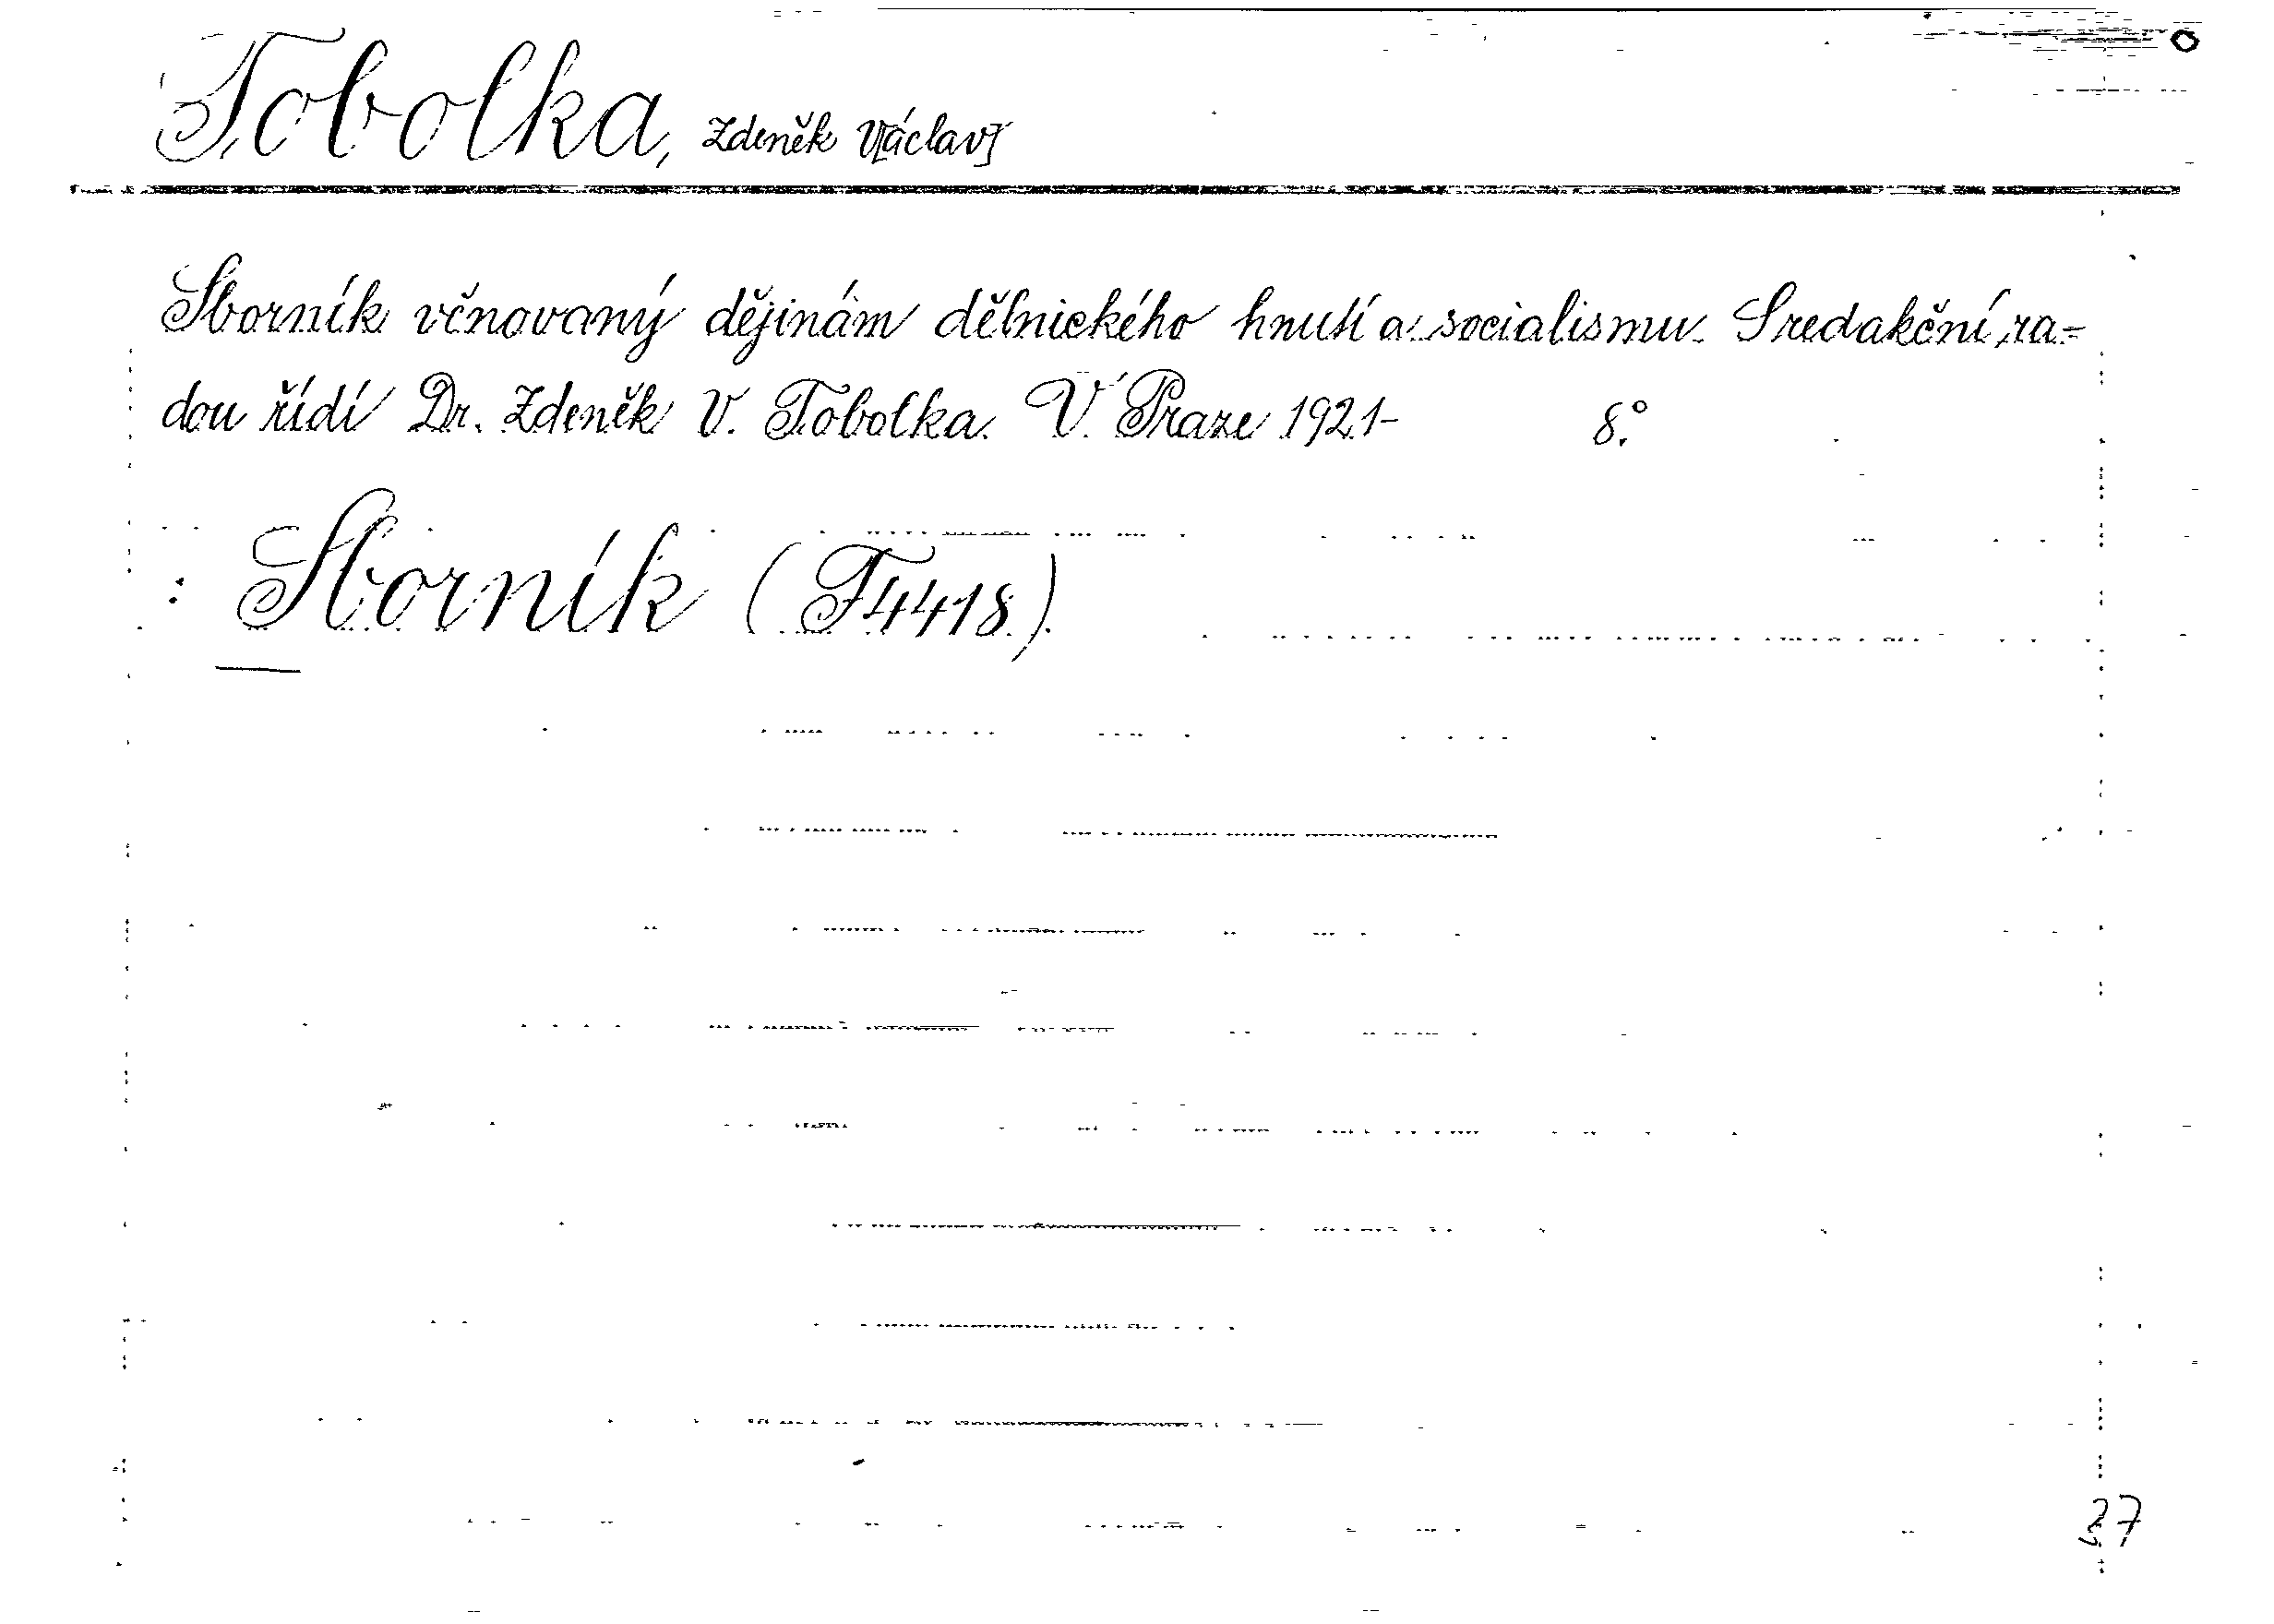 Tobolka, Zdeněk V[áclav]
Sborník věnovaný dějinám dělnického hnutí a socialismu. S redakční ra-
dou řídí Dr. Zdeněk V. Tobolka. V Praze 1921- 8.°
: Sborník (F4418.)
37